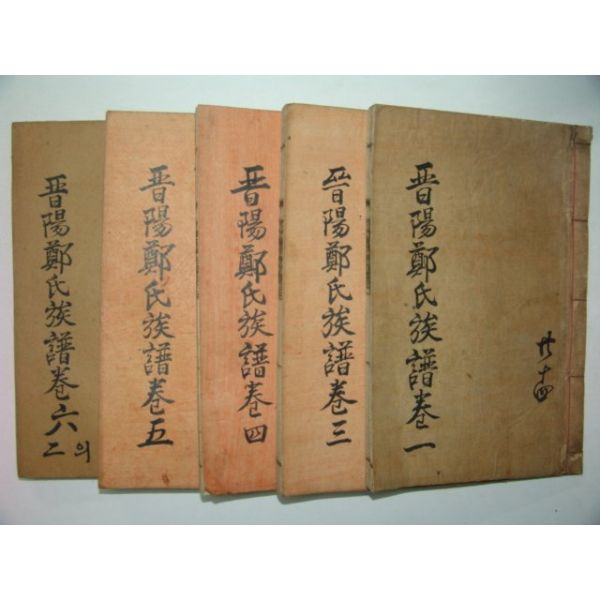 晋陽鄭氏族譜卷一
晉陽鄭氏族譜卷三
晋陽鄭氏族譜卷四
晋陽鄭氏族譜卷五
晋陽鄭氏族譜卷六
의 二